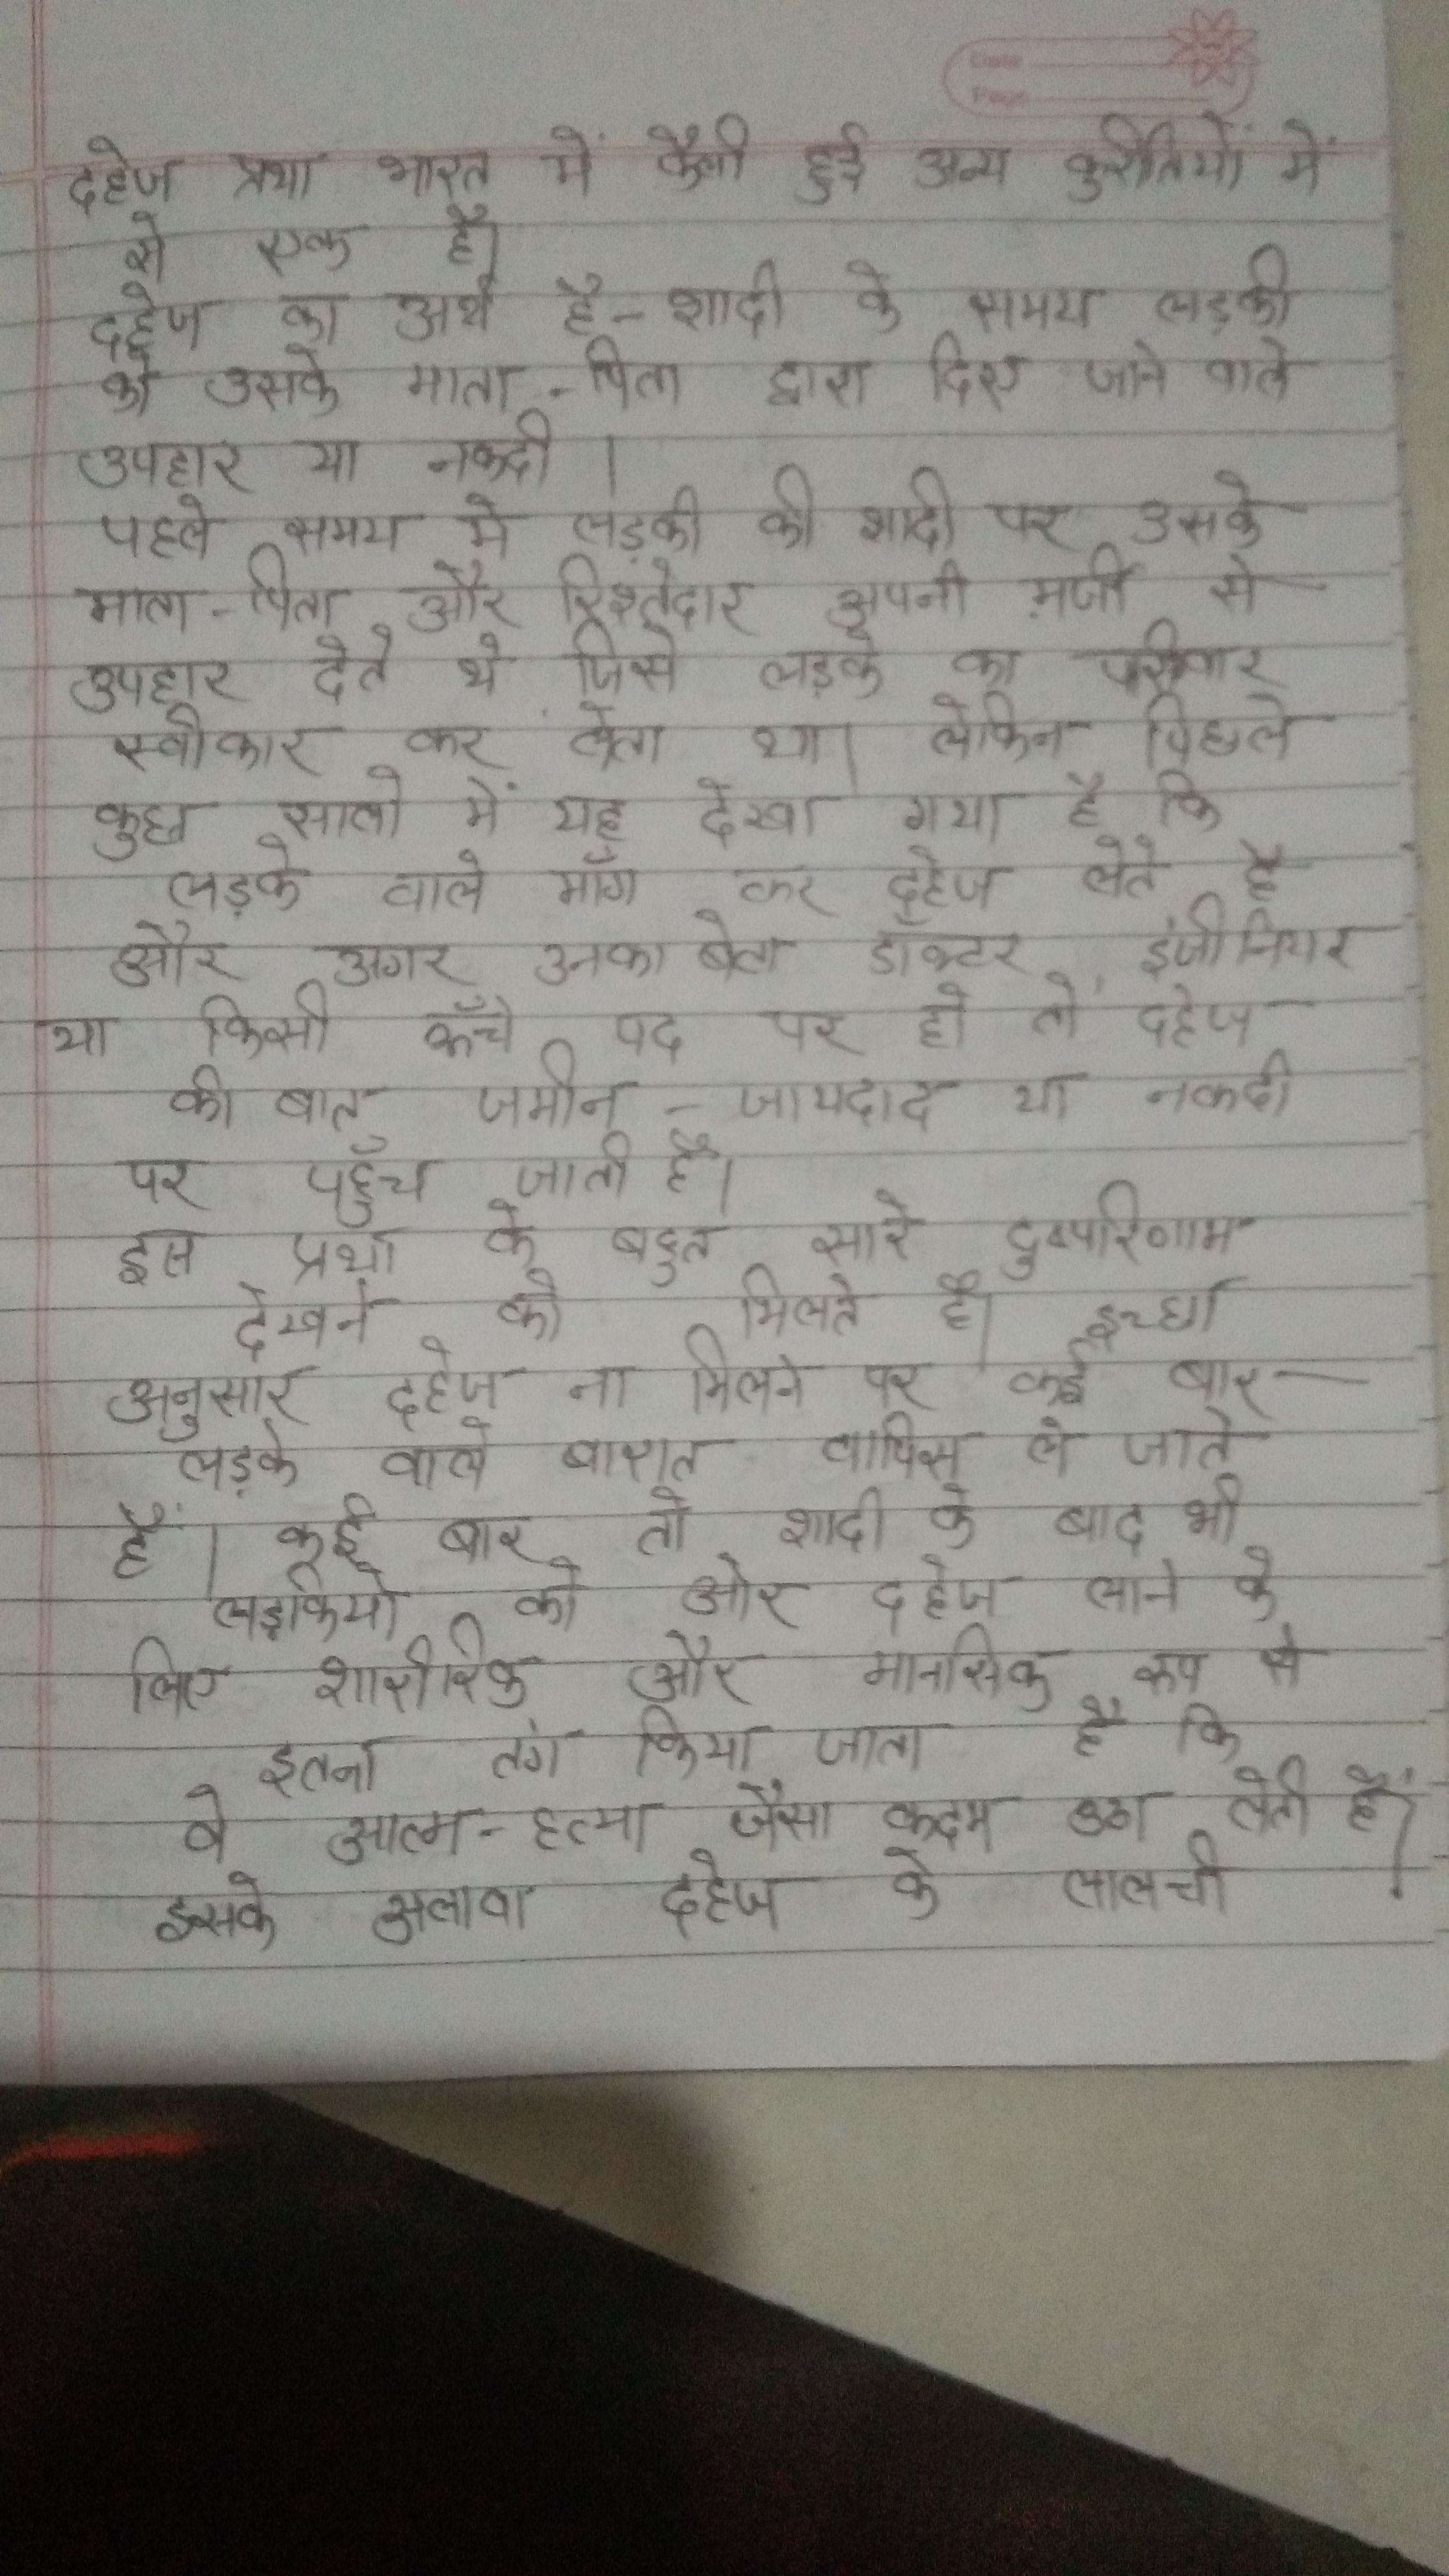 Date
Page
दहेज प्रथा भारत में फैली हुई अन्य कुरीतियों में
से एक है।
दहेज का अर्थ है - शादी के समय लड़की
को उसके माता - पिता द्वारा दिए जाने वाले
उपहार या नकदी ।
पहले समय मे लड़की की शादी पर उसके
माता - पिता और रिश्तेदार अपनी मर्जी से
उपहार देते थे जिसे लड़के का परिवार
स्वीकार कर लेता था। लेकिन पिछले
कुछ सालो में यह देखा गया है कि
लड़के वाले माँग कर दहेज लेते है
और अगर उनका बेटा डॉक्टर , इंजीनियर
या किसी ऊँचे पद पर हो तो दहेज
की बात जमीन - जायदाद या नकदी
पर पहुँच जाती है।
इस प्रथा के बहुत सारे दुष्परिणाम
देखने को मिलते है। इच्छा
अनुसार दहेज ना मिलने पर कई बार
लड़के वाले बारात वापिस ले जाते
हैं । कई बार तो शादी के बाद भी
लड़कियो को ओर दहेज लाने के
लिए शारीरिक और मानसिक रूप से
इतना तंग किया जाता है कि
वे आत्म - हत्या जैसा कदम उठा लेती हैं।
इसके अलावा दहेज के लालची